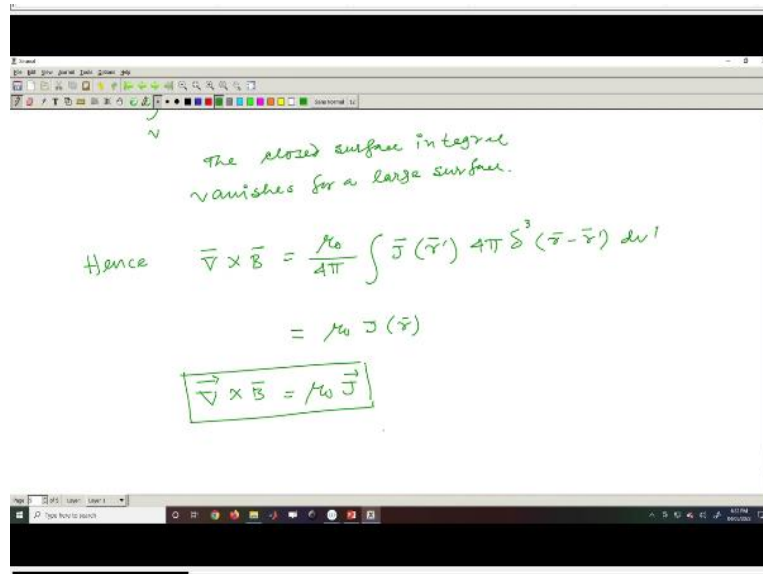 File Edit View Journal Tools Options Help
V
The closed surface integral
vanishes for a large surface.
Hence ∇̄ × B̄ = μ₀/4π ∫ J̄(r̄') 4π δ³(r̄-r̄') dv'
= μ₀ J(r̄)
∇⃗ × B̄ = μ₀ J⃗
Page 5 of 5 Layer: Layer 1
Type here to search